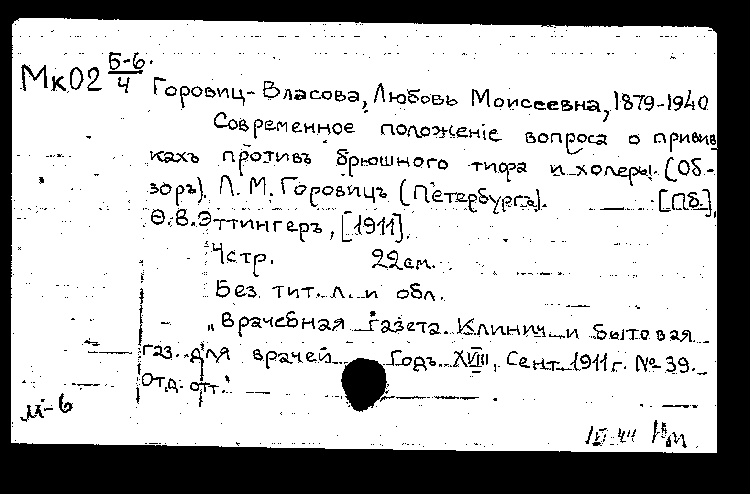 Мк02 5-6.
4
Горовиц-Власова, Любовь Моисеевна, 1879-1940
Современное положенiе вопроса о привив
кахъ противъ брюшного тифа и холеры. (Об-
зоръ). Л. М. Горовицъ (Петербургъ). [Пб.],
Ѳ.В.Эттингеръ, [1911].
4стр. 22см.
Без тит. л. и обл.
"Врачебная газета. Клинич. и бытовая
газ. для врачей Годъ XVIII, Сент. 1911 г. № 39.
Отд. отт."
м-6